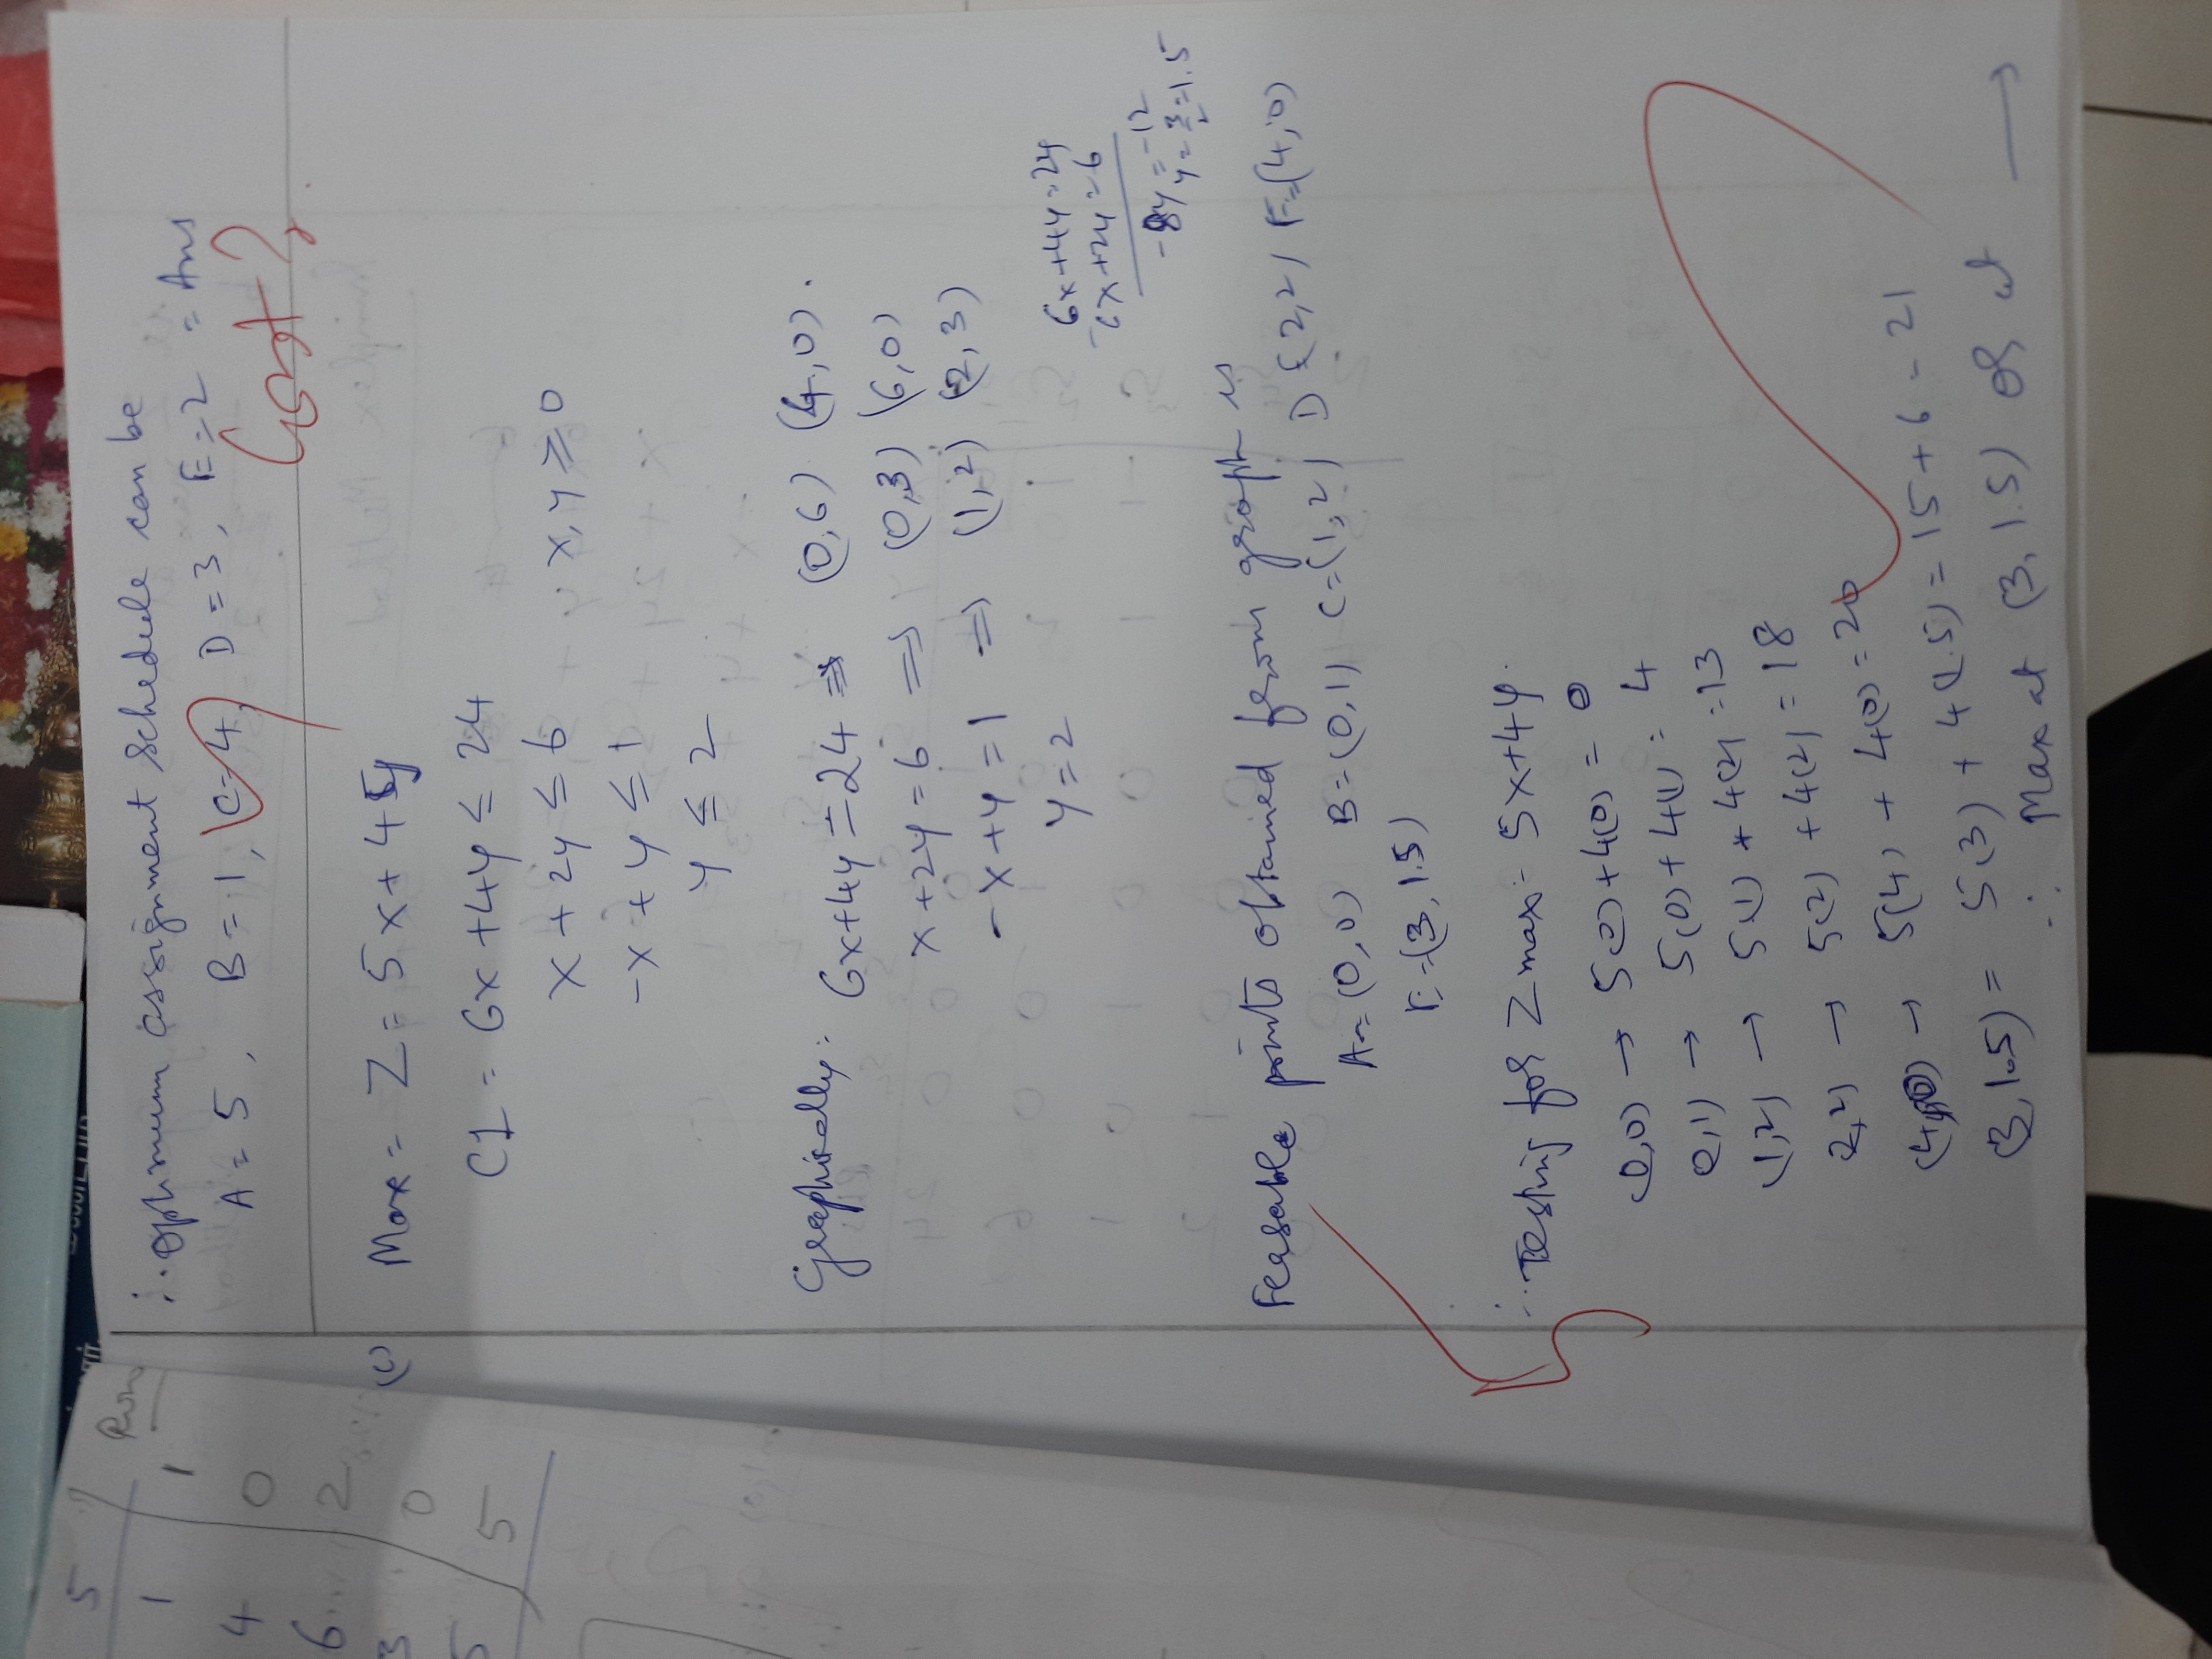 5
Row
1 1
4 0
6 2
3 0
5 5
∴ Optimum assignment Schedule can be
A = 5, B = 1, C = 4, D = 3, E = 2 = Ans
Cost?
(c) Max = Z = 5x + 4y
C1 = 6x + 4y ≤ 24
x + 2y ≤ 6 x, y ≥ 0
-x + y ≤ 1
y ≤ 2
Graphically: 6x+4y = 24 ⇒ (0,6) (4,0).
x + 2y = 6 ⇒ (0,3) (6,0)
-x + y = 1 ⇒ (1,2) (2,3)
y = 2
6x+4y=24
6x+2y=6
-8y = -12
y = 3/2 = 1.5
Feasable points obtained from graph is
A = (0,0) B = (0,1) C = (1,2) D (2,2) E = (4,0)
E = (3, 1.5)
∴ Testing for Z max = 5x+4y.
(0,0) → 5(0)+4(0) = 0
0,1) → 5(0) + 4(1) = 4
(1,2) → 5(1) + 4(2) = 13
2,2) → 5(2) + 4(2) = 18
(4,0) → 5(4) + 4(0) = 20
(3,1.5) = 5(3) + 4(1.5) = 15 + 6 = 21
∴ Max at (3, 1.5) or at →